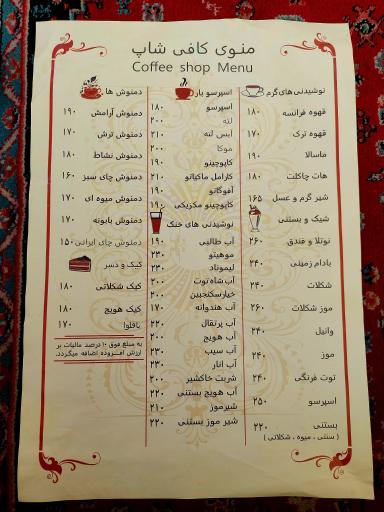 منوی کافی شاپ
Coffee shop Menu
نوشیدنی های گرم
قهوه فرانسه ۱۸۰
قهوه ترک ۱۷۰
ماسالا ۱۹۰
هات چاکلت ۱۸۰
شیر گرم و عسل ۱۶۵
شیک و بستنی
نوتلا و فندق ۲۶۰
بادام زمینی ۲۴۰
شکلات ۲۴۰
موز شکلات ۲۶۰
وانیل ۲۴۰
موز ۲۴۰
توت فرنگی ۲۴۰
اسپرسو ۲۵۰
بستنی ۲۲۰
( سنتی ، میوه ، شکلاتی )
اسپرسو بار
اسپرسو ۱۸۰
لته ۲۰۰
آیس لته ۲۱۰
موکا ۲۰۰
کاپوچینو ۱۹۰
کارامل ماکیاتو ۲۱۰
آفوگاتو ۱۹۰
کاپوچینو مکزیکی ۱۹۰
نوشیدنی های خنک
آب طالبی ۱۹۰
موهیتو ۲۳۰
لیموناد ۲۳۰
آب شاه توت ۲۰۰
خیارسکنجبین ۲۰۰
آب هندوانه ۱۷۰
آب پرتقال ۲۲۰
آب هویج ۲۰۰
آب سیب ۲۳۰
آب انار ۲۳۰
شربت خاکشیر ۲۰۰
آب هویج بستنی ۲۲۰
شیرموز ۲۱۰
شیر موز بستنی ۲۲۰
دمنوش ها
دمنوش آرامش ۱۹۰
دمنوش ترش ۱۷۰
دمنوش نشاط ۱۸۰
دمنوش چای سبز ۱۶۰
دمنوش میوه ای ۱۷۰
دمنوش بابونه ۱۷۰
دمنوش چای ایرانی ۱۵۰
کیک و دسر
کیک شکلاتی ۱۸۰
کیک هویج ۱۸۰
باقلوا ۱۷۰
به مبلغ فوق ۱۰ درصد مالیات بر
ارزش افـــزوده اضافه میگـردد.